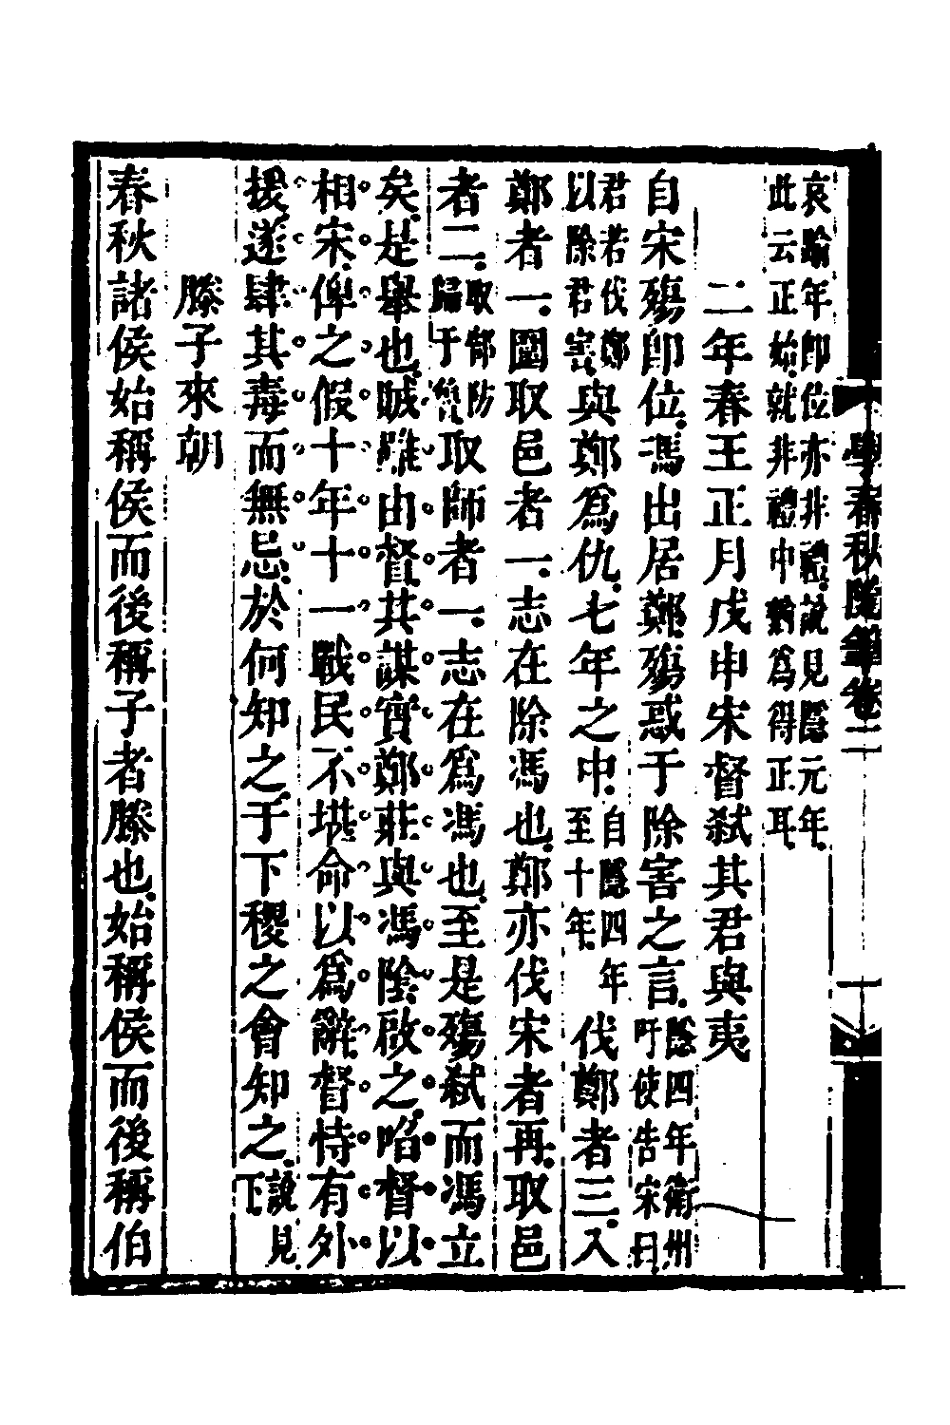 學春秋隨筆卷二
哀踰年卽位亦非禮說見隱元年
此云正始就非禮中猶爲得正耳
二年春王正月戊申宋督弒其君與夷
自宋殤卽位馮出居鄭殤惑于除害之言隱四年衛州
吁使告宋曰
君若伐鄭
以除君害與鄭爲仇七年之中自隱四年
至十年伐鄭者三入
鄭者一圍取邑者一志在除馮也鄭亦伐宋者再取邑
者二取郜防
歸于我取師者一志在爲馮也至是殤弒而馮立
矣是舉也賊雖由督其謀實鄭莊與馮陰啟之啗督以
相宋俾之假十年十一戰民不堪命以爲辭督恃有外
援遂肆其毒而無忌於何知之于下稷之會知之說見
下
滕子來朝
春秋諸侯始稱侯而後稱子者滕也始稱侯而後稱伯